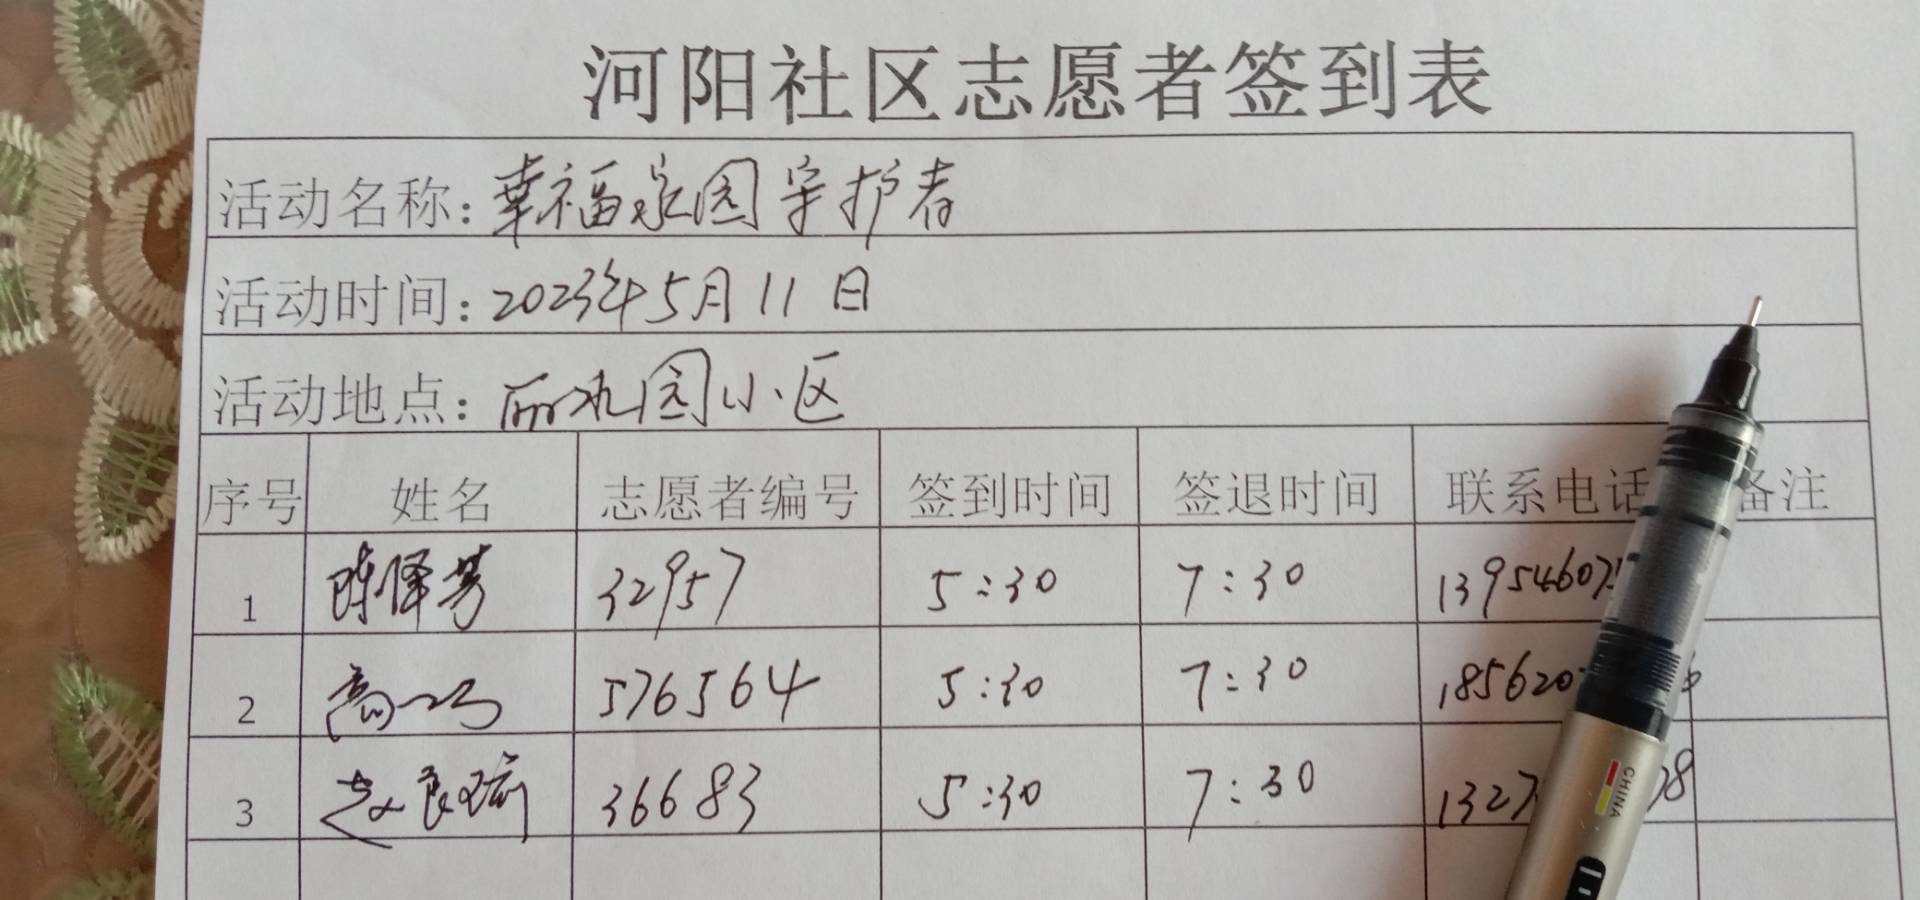 河阳社区志愿者签到表
活动名称：幸福家园守护者
活动时间：2023年5月11日
活动地点：丽水园小区
序号 姓名 志愿者编号 签到时间 签退时间 联系电话 备注
1 陈泽芳 32957 5:30 7:30 13954607
2 高 576564 5:30 7:30 185620
3 赵良瑜 36683 5:30 7:30 1327 78
CHINA